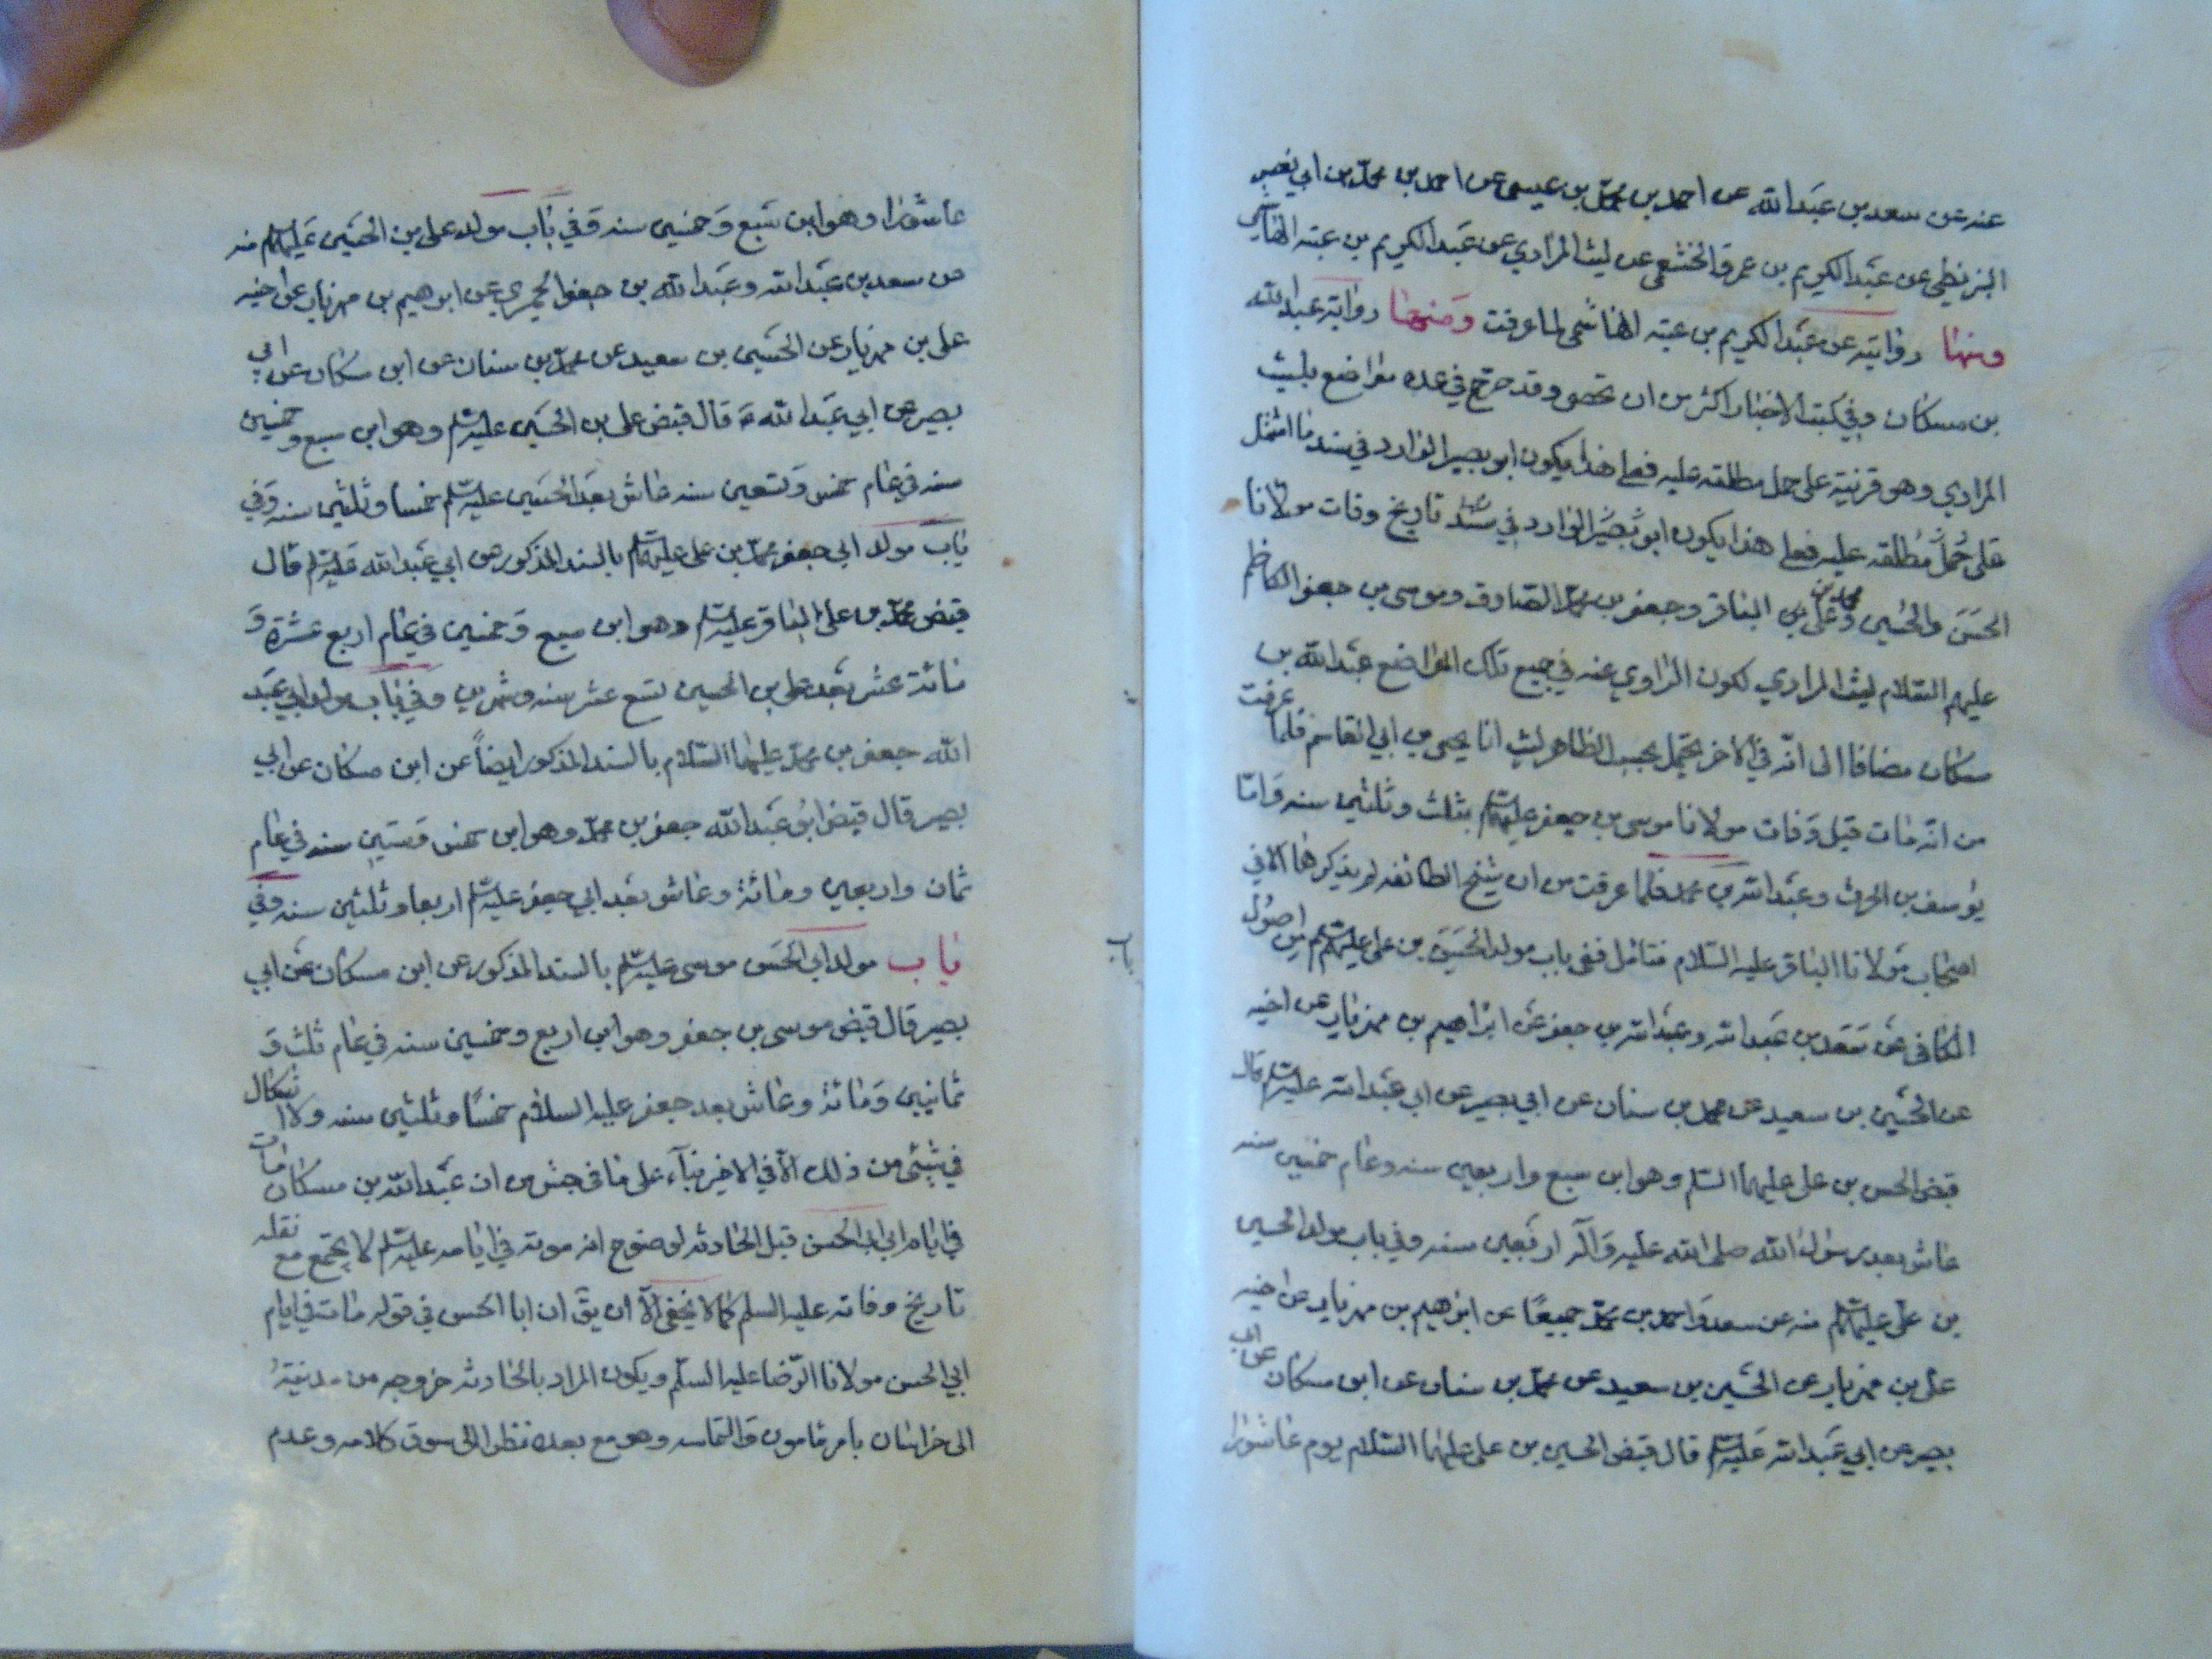 عنه عن سعد بن عبد الله عن احمد بن محمد بن عيسى عن احمد بن محمد بن ابي نصر
البزنطي عن عبد الكريم بن عمرو الخثعمي عن ليث المرادي عن عبد الكريم بن عتبه الهاشمي
ومنها روايته عن عبد الكريم بن عتبه الهاشمي لما عرفت ومنها رواية عبد الله
بن مسكان وفي كتب الاخبار اكثر من ان تحصى وقد صرح في عده مواضع بليث
المرادي وهو قرنية على حمل مطلقه عليه فعلى هذا يكون ابو بصير الوارد في سند ما اشتمل
على حمل مطلقه عليه فعلى هذا يكون ابو بصير الوارد في سند تاريخ وفات مولانا
الحسن والحسين وعلى بن محمد بن الباقر وجعفر بن محمد الصادق وموسى بن جعفر الكاظم
عليهم السلام ليث المرادي لكون الراوي عنه في جميع تلك المواضع عبد الله بن
مسكان مضافا الى انه في الاخر يحتمل بحسب الظاهر ليث انا يحيى بن ابي القاسم فلما عرفت
من انه مات قبل وفات مولانا موسى بن جعفر عليهم بثلث وثلثين سنه وامّا
يوسف بن الحرث وعبد الله بن محمد فلما عرفت من ان شيخ الطائفه لم يذكرهما الا في
اصحاب مولانا الباقر عليه السلام فتامل ففى باب مولد الحسن بن على عليهم من اصول
الكافى عن سعد بن عبد الله وعبد الله بن جعفر عن ابراهيم بن مهزيار عن اخيه
عن الحسين بن سعيد عن محمد بن سنان عن ابي بصير عن ابي عبد الله عليه السلم قال
قبض الحسن بن على عليهما السلم وهو ابن سبع واربعين سنه وعام خمسين سنه
عاش بعد رسول الله صلى الله عليه وآله اربعين سنه وفي باب مولد الحسين
بن على عليهم منه عن سعد واحمد بن محمد جميعًا عن ابرهيم بن مهزيار عن اخيه
على بن مهزيار عن الحسين بن سعيد عن محمد بن سنان عن ابن مسكان عن ابي
بصير عن ابي عبد الله عليه السلم قال قبض الحسين بن على عليهما السلام يوم عاشورا
عاشورا وهو ابن سبع وخمسين سنه وفي باب مولد على بن الحسين عليهم منه
عن سعد بن عبد الله وعبد الله بن جعفر الحميري عن ابرهيم بن مهزيار عن اخيه
على بن مهزيار عن الحسين بن سعيد عن محمد بن سنان عن ابن مسكان عن ابي
بصير عن ابي عبد الله ع قال قبض على بن الحسين عليه السلم وهو ابن سبع وخمسين
سنه في عام خمس وتسعين سنه عاش بعد الحسين عليه السلم خمسا وثلثين سنه وفي
باب مولد ابي جعفر محمد بن على عليهم بالسند المذكور عن ابي عبد الله عليه السلم قال
قبض محمد بن على الباقر عليه السلم وهو ابن سبع وخمسين في عام اربع عشرة و
مائة عش بعد على بن الحسين تسع عشر سنه وشهرين وفي باب مولد ابي عبد
الله جعفر بن محمد عليهما السلام بالسند المذكور ايضاً عن ابن مسكان عن ابي
بصير قال قبض ابو عبد الله جعفر بن محمد وهو ابن خمس وستين سنه في عام
ثمان واربعين ومائة وعاش بعد ابي جعفر عليه السلم اربعا وثلثين سنه وفي
باب مولد ابي الحسن موسى عليه السلم بالسند المذكور عن ابن مسكان عن ابي
بصير قال قبض موسى بن جعفر وهو ابن اربع وخمسين سنه في عام ثلث و
ثمانيين ومائة وعاش بعد جعفر عليه السلام خمسًا وثلثين سنه ولا اشكال
في شيئ من ذلك الا في الاخير بناء على ما في جش من ان عبد الله بن مسكان مات
في ايام ابي الحسن قبل الحادثه لوضوح انه موته في ايامه عليه السلم لا يجتمع مع نقله
تاريخ وفاته عليه السلم كما لا يخفى الا ان يق ان ابا الحسن في قوله مات في ايام
ابي الحسن مولانا الرّضا عليه السلم ويكون المراد بالحادثه خروجه من مدنيته
الى خراسان بامر مامون والتماسه وهو مع بعده نظرا الى سوق كلامه وعدم
باب